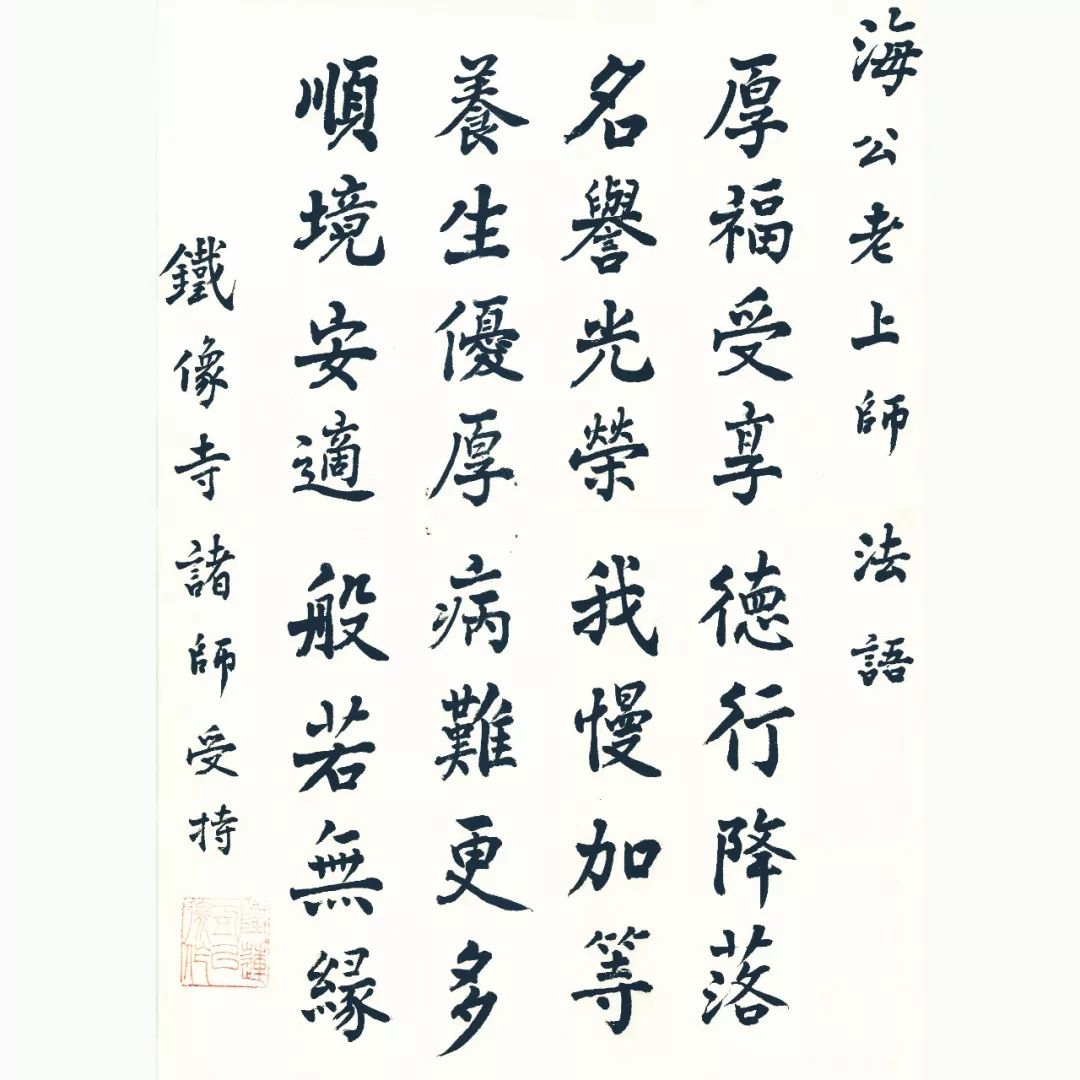 海公老上師 法語
厚福受享 德行降落
名譽光榮 我慢加等
養生優厚 病難更多
順境安適 般若無緣
鐵像寺諸師受持